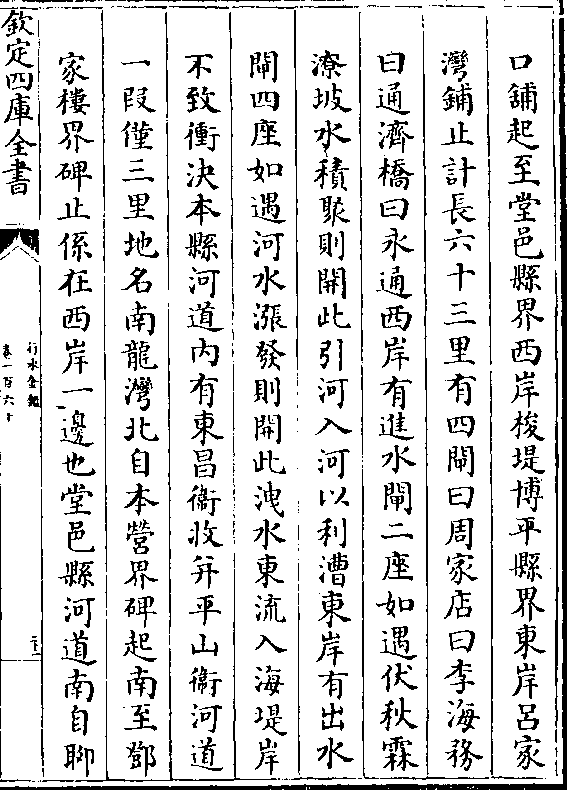 口舖起至堂邑縣界西岸梭堤博平縣界東岸呂家
灣鋪止計長六十三里有四閘曰周家店曰李海務
曰通濟橋曰永通西岸有進水閘二座如遇伏秋霖
潦坡水積聚則開此引河入河以利漕東岸有出水
閘四座如遇河水漲發則開此洩水東流入海堤岸
不致衝決本縣河道内有東昌衞收并平山衞河道
一叚僅三里地名南龍灣北自本營界碑起南至鄧
家樓界碑止係在西岸一邊也堂邑縣河道南自聊
欽定四庫全書
行水金鑑
卷一百六十